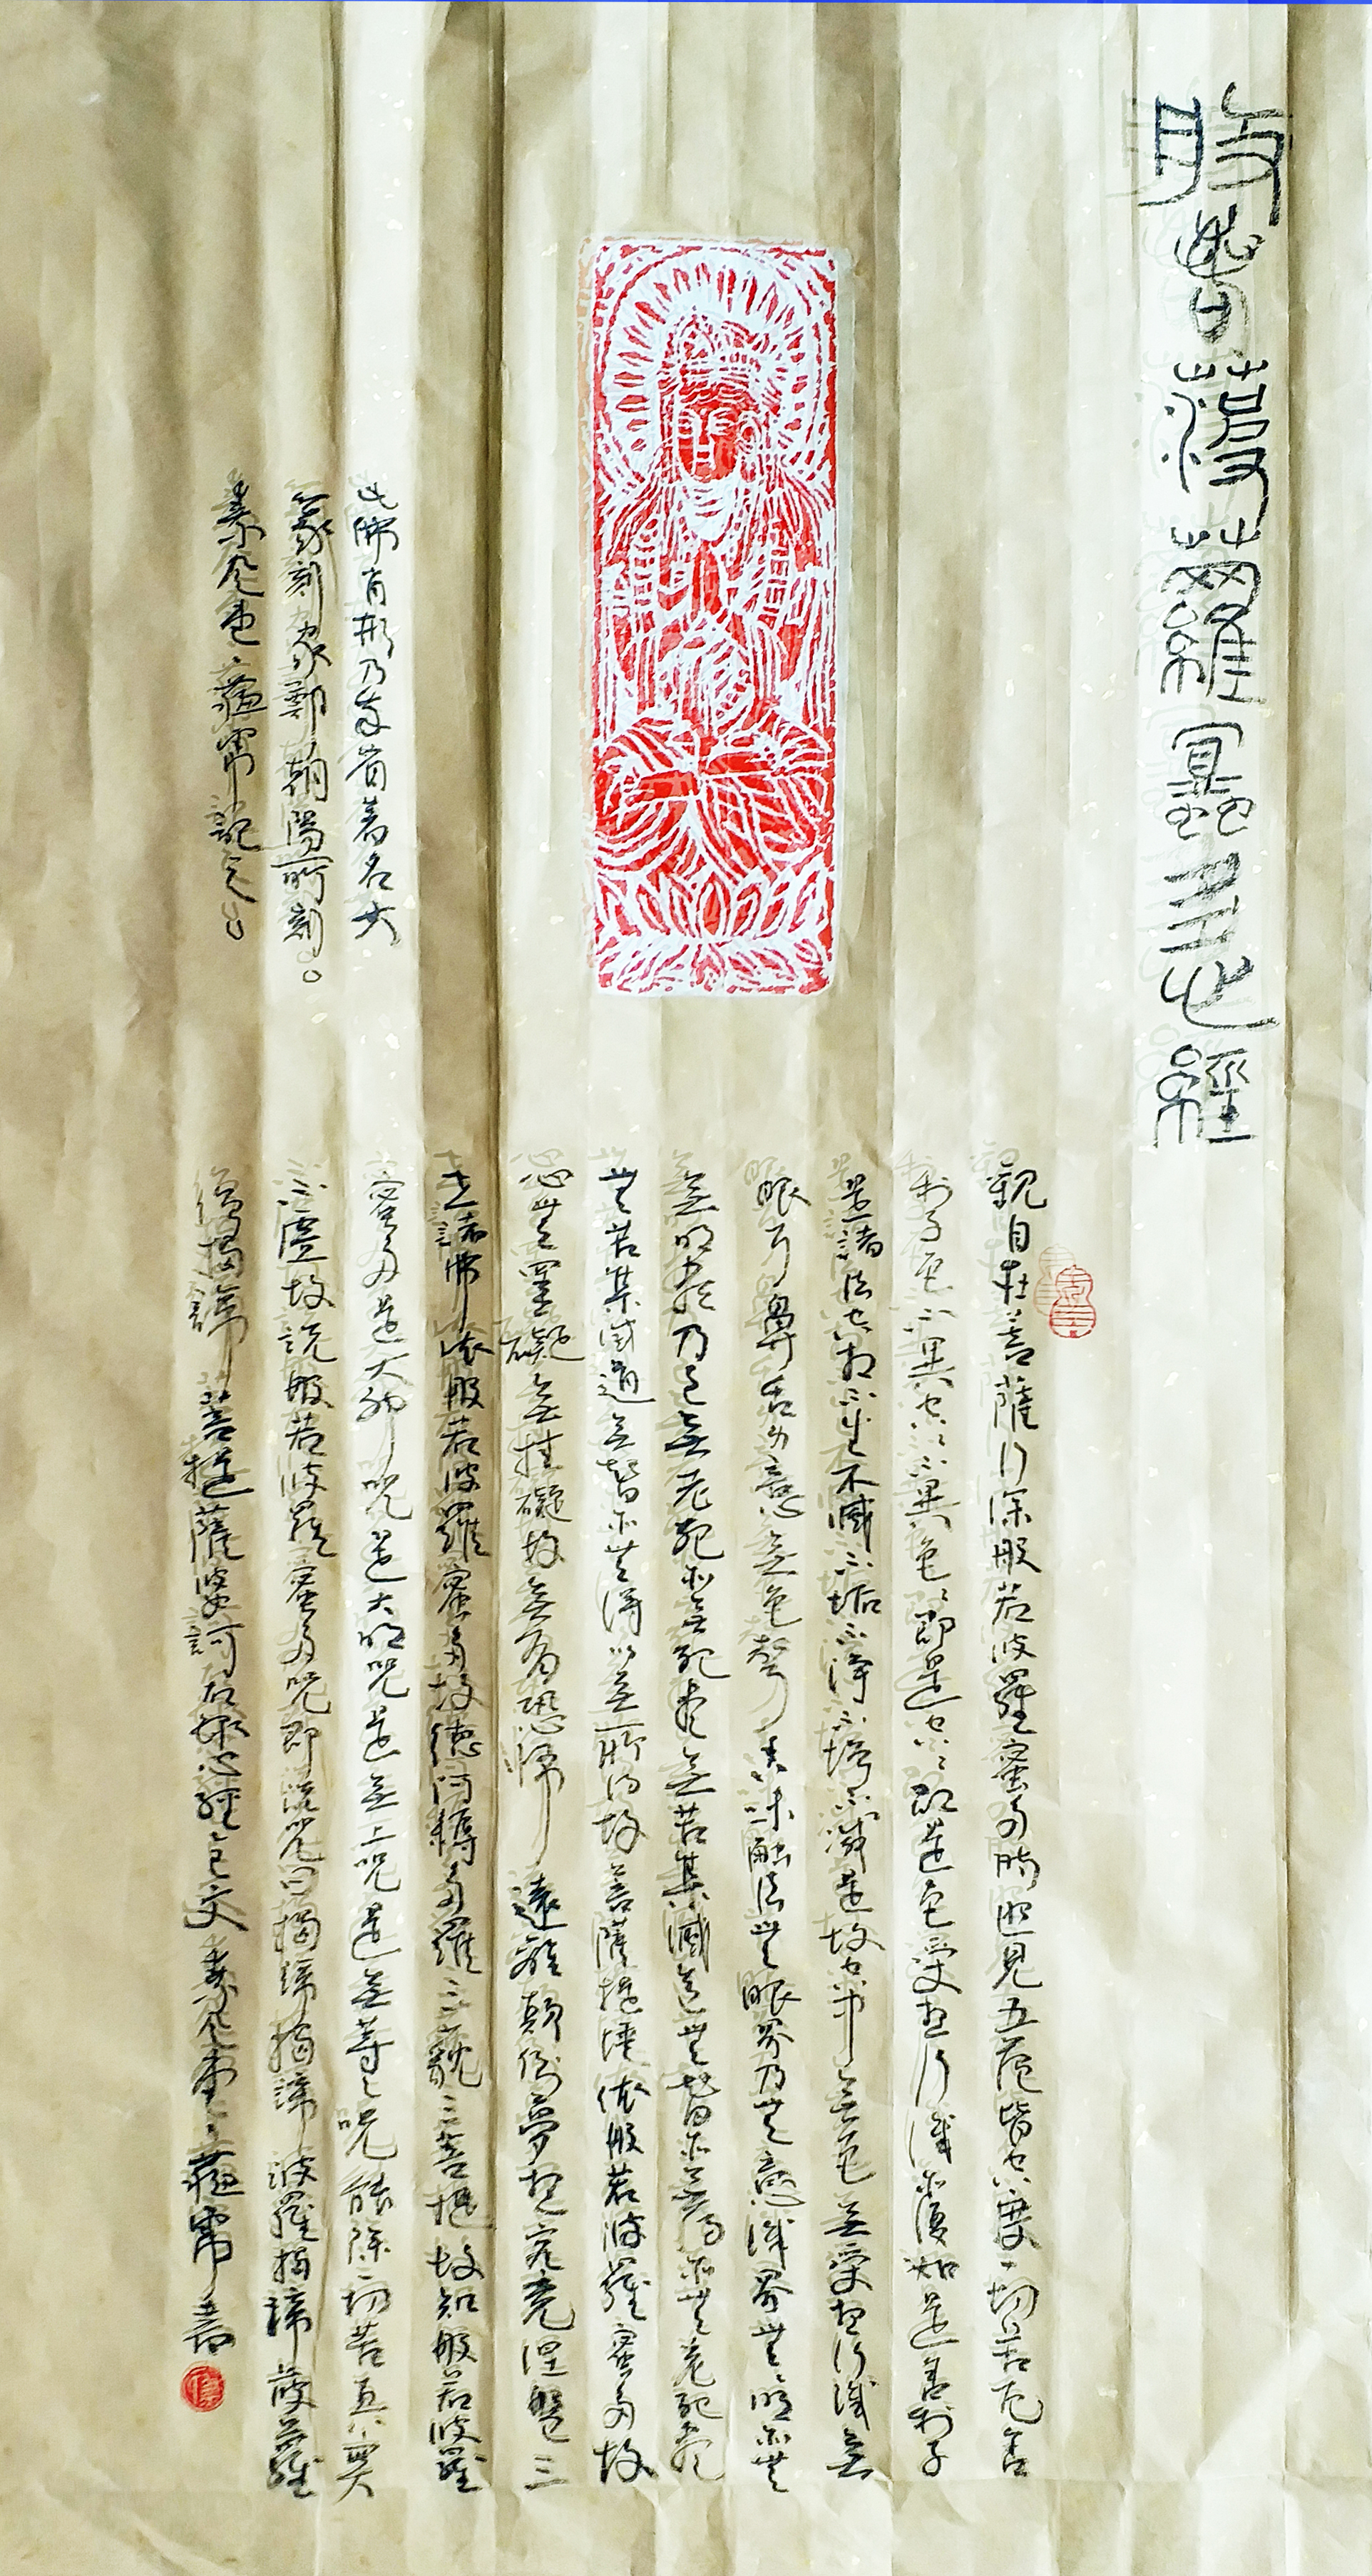 般若菠蘿蜜多心經
觀自在菩薩行深般若波羅蜜多時照見五蘊皆空度一切苦厄舍
利子色不異空空不異色色即是空空即是色受想行識亦復如是舍利子
是諸法空相不生不滅不垢不淨不增不減是故空中無色無受想行識無
眼耳鼻舌身意無色聲香味觸法無眼界乃無意識界無無明亦無
無明盡乃至無老死亦無死盡無苦集滅道無智亦無得亦無老死盡
無苦集滅道無智亦無得以無所得故菩薩提埵依般若波羅蜜多故
心無罣礙無挂礙故無有恐怖遠離顛倒夢想究竟涅槃三
世諸佛依般若波羅蜜多故得阿耨多羅三藐三菩提故知般若波羅
蜜多是大神咒是大明咒是無上咒是無等等咒能除一切苦真實
不虛故說般若波羅蜜多咒即說咒曰揭諦揭諦波羅揭諦菠蘿
僧揭諦菩提薩婆訶右錄心經全文素堂蘊甯書
此佛肖形乃我省著名女
篆刻家鄭朝陽所刻。
素堂蘊甯記之